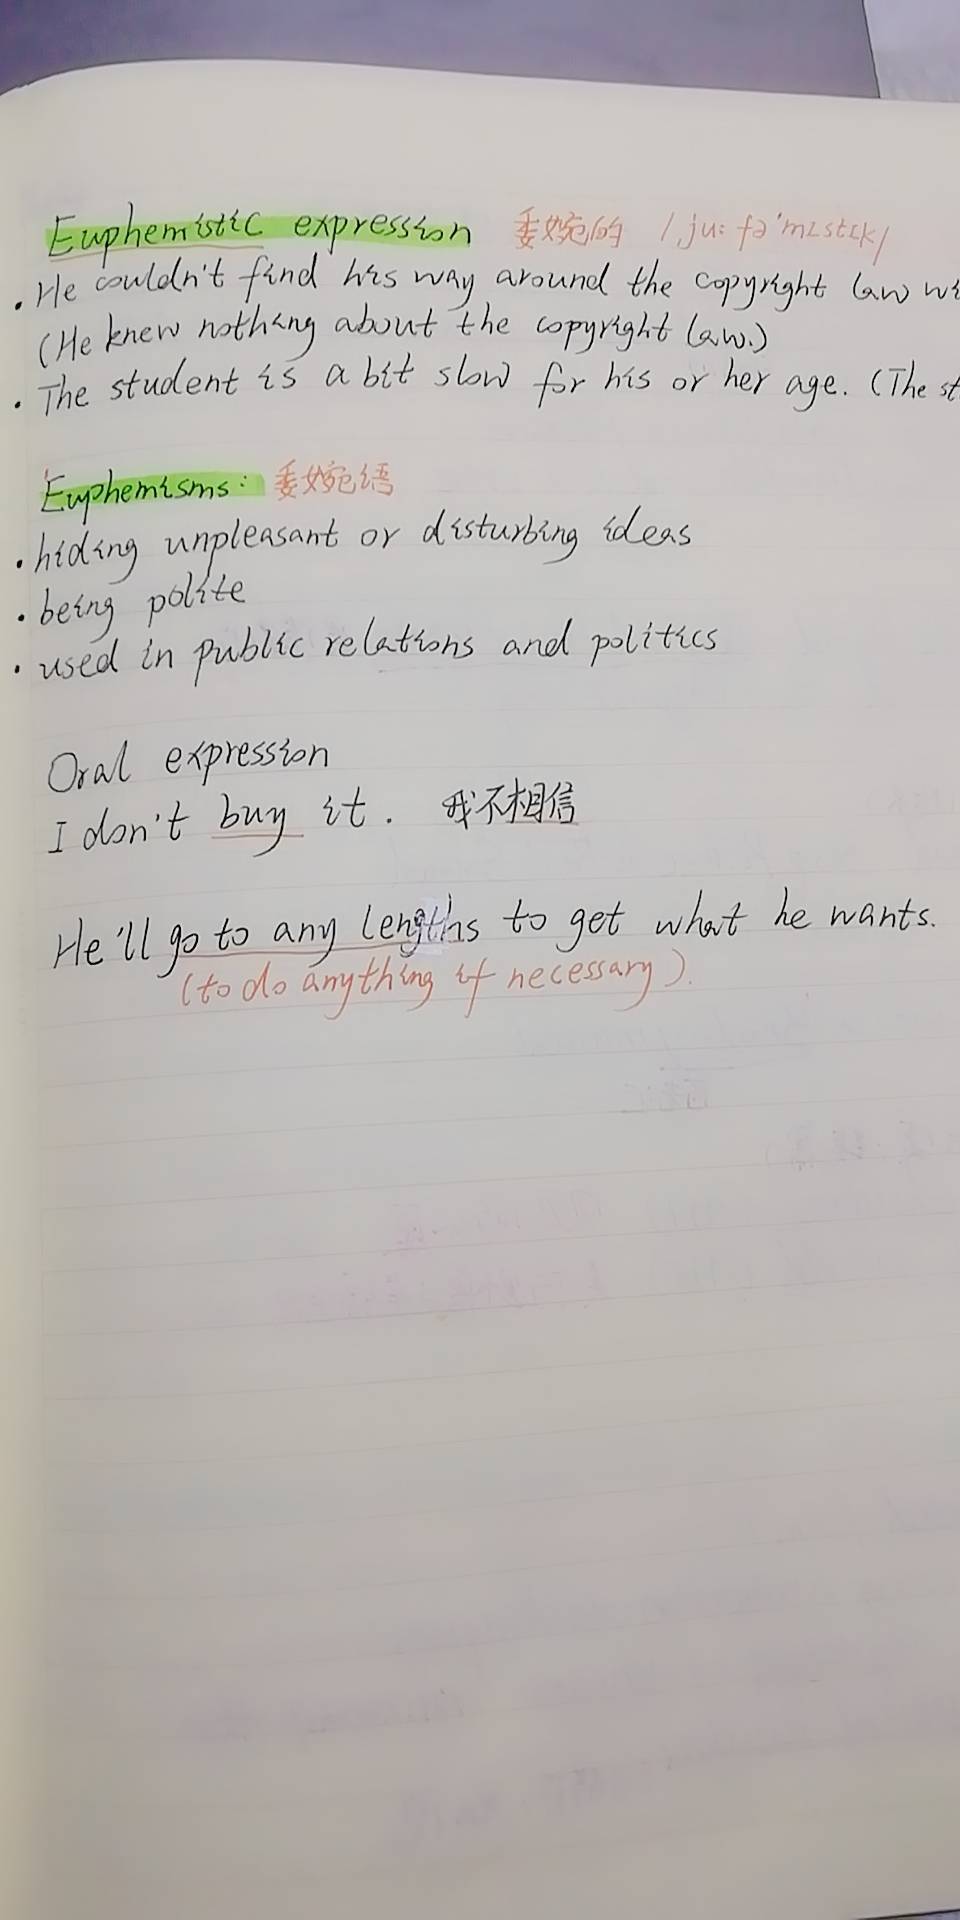 Euphemistic expression 委婉的 /ˌjuːfə'mɪstɪk/
. He couldn't find his way around the copyright law
(He knew nothing about the copyright law.)
. The student is a bit slow for his or her age. (The
Euphemisms: 委婉语
. hiding unpleasant or disturbing ideas
. being polite
. used in public relations and politics
Oral expression
I don't buy it. 我不相信
He'll go to any lengths to get what he wants.
(to do anything if necessary).